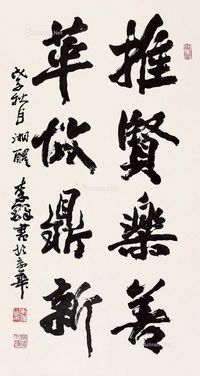 推賢樂善
革故鼎新
戊子秋月湘醴
李鐸書於京華